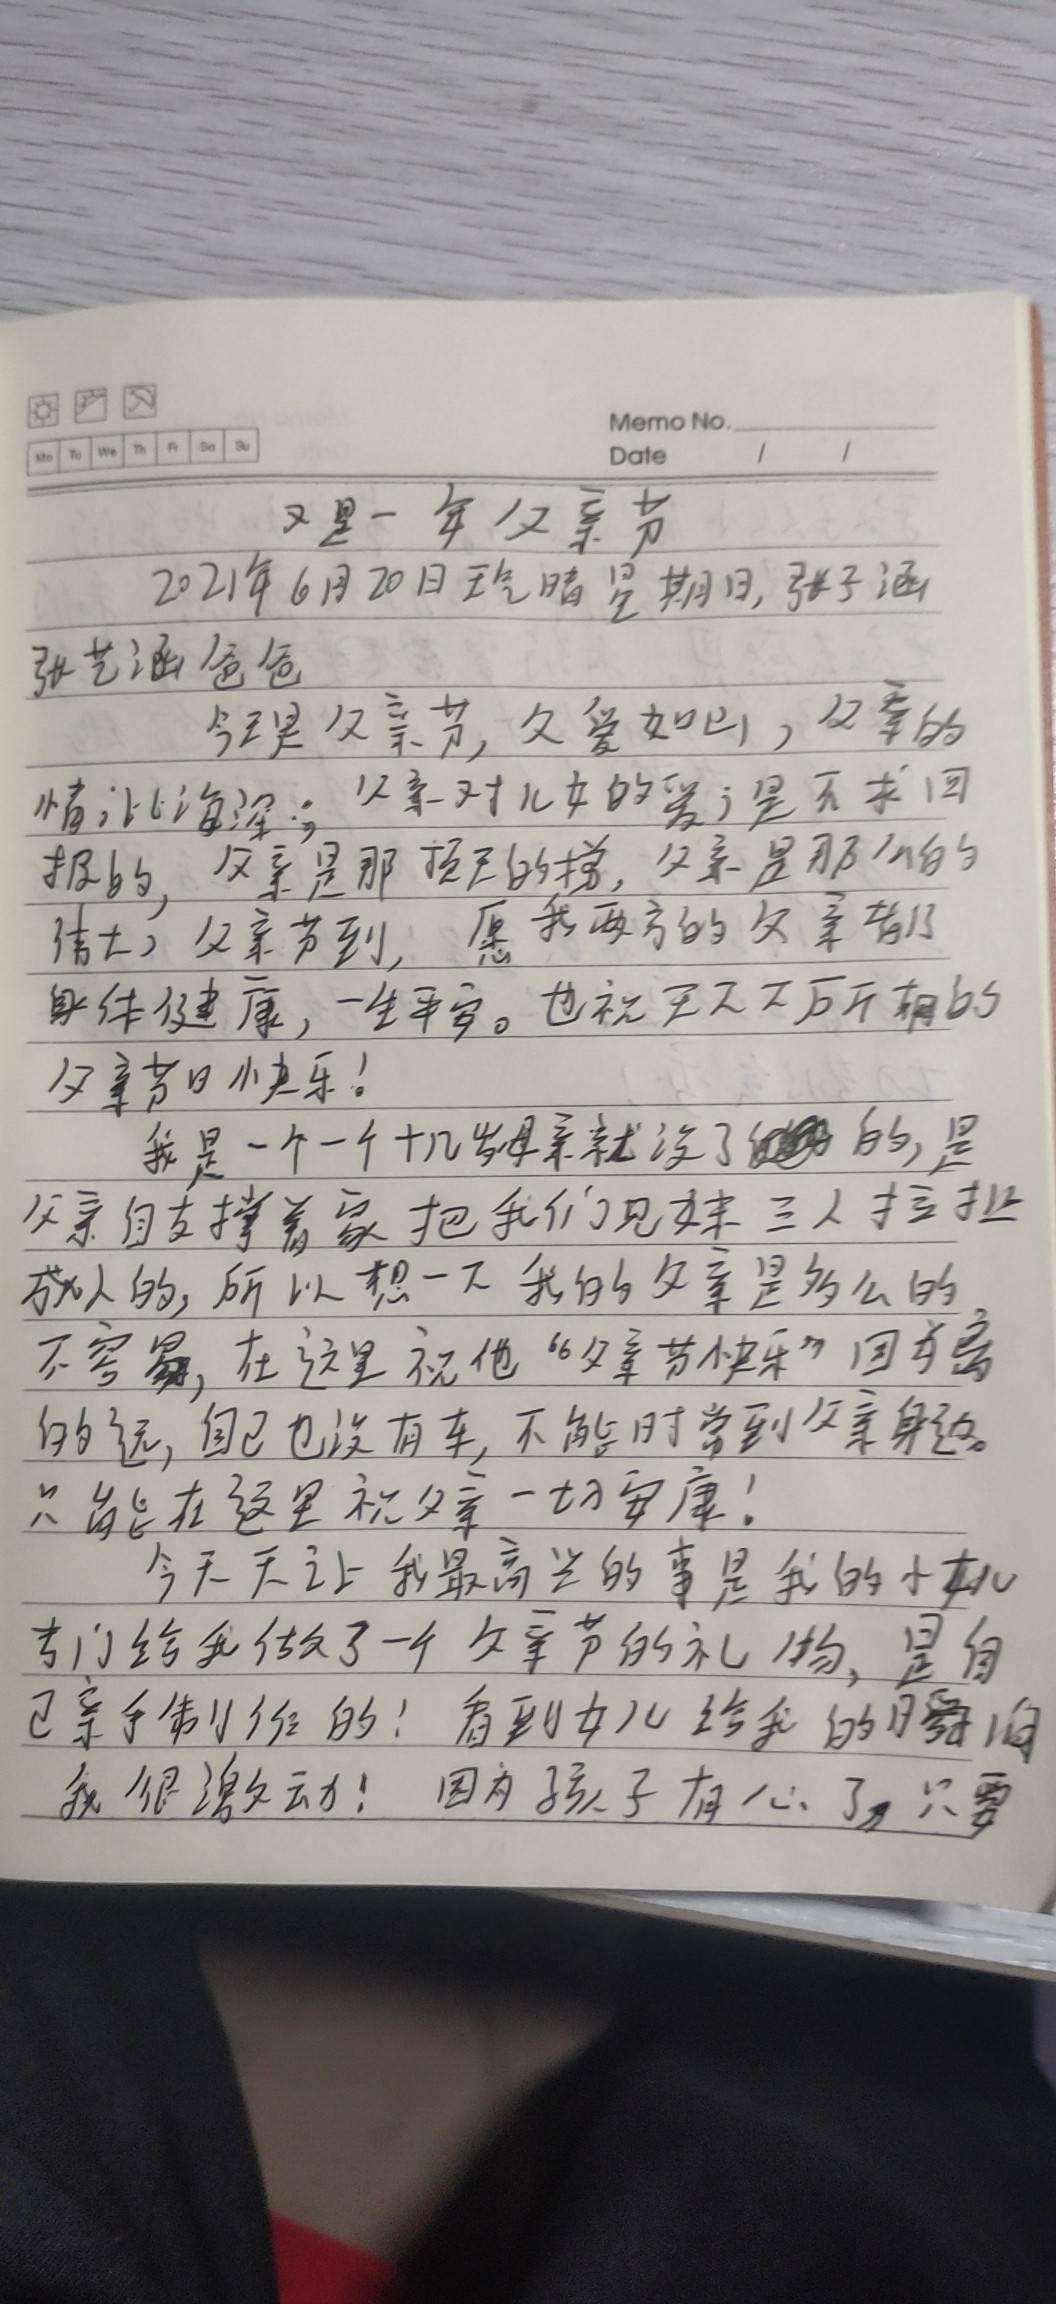 Mo Tu We Th Fr Sa Su
Memo No.
Date / /
又是一年父亲节
2021年6月20日天气晴星期日,张子涵
张艺涵爸爸
今天是父亲节,父爱如山,父亲的
情,比海深;父亲对儿女的爱,是不求回
报的,父亲是那顶天的梯,父亲是那的
伟大,父亲节到,愿我两方的父亲都
身体健康,一生平安。也祝天下所有的
父亲节日快乐!
我是一个一个十几岁母亲就没了的,是
父亲自支撑着家把我们兄妹三人拉扯
成人的,所以想一下我的父亲是多么的
不容易,在这里祝他“父亲节快乐”因为离
的远,自己也没有车,不能时常到父亲身边。
只能在这里祝父亲一切安康!
今天天让我最高兴的事是我的小女儿
专门给我做了一个父亲节的礼物,是自
己亲手制作的!看到女儿给我的瞬间
我很激动!因为孩子有心了,只要